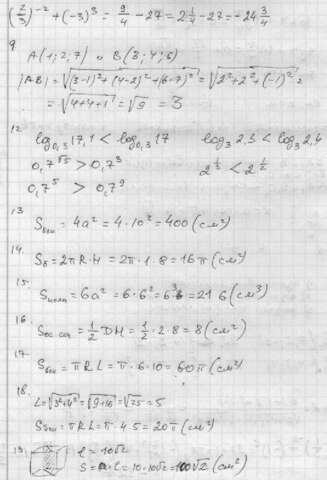 (2/3)^-2 + (-3)^3 = 9/4 - 27 = 2 1/4 - 27 = -24 3/4
9
A(1;2;7) и B(3;4;6)
|AB| = √((3-1)² + (4-2)² + (6-7)²) = √(2²+2²+(-1)²) =
= √(4+4+1) = √9 = 3
12
log₀,₃ 17,1 < log₀,₃ 17 log₃ 2,3 < log₃ 2,4
0,7^√5 > 0,7³ 2^(1/3) < 2^(1/2)
0,7⁵ > 0,7⁹
13
Sбок = 4a² = 4·10² = 400 (см²)
14.
Sб = 2πR·H = 2π·1·8 = 16π (см²)
15.
Sполн = 6a² = 6·6² = 6³ = 216 (см³)
16
Sос сеч = 1/2 DH = 1/2·2·8 = 8 (см²)
17.
Sбок = πRL = π·6·10 = 60π (см²)
18.
L = √(3²+4²) = √(9+16) = √25 = 5
Sбок = πRL = π·4·5 = 20π (см²)
19. l = 10√2
S = a·l = 10·10√2 = 100√2 (см²)